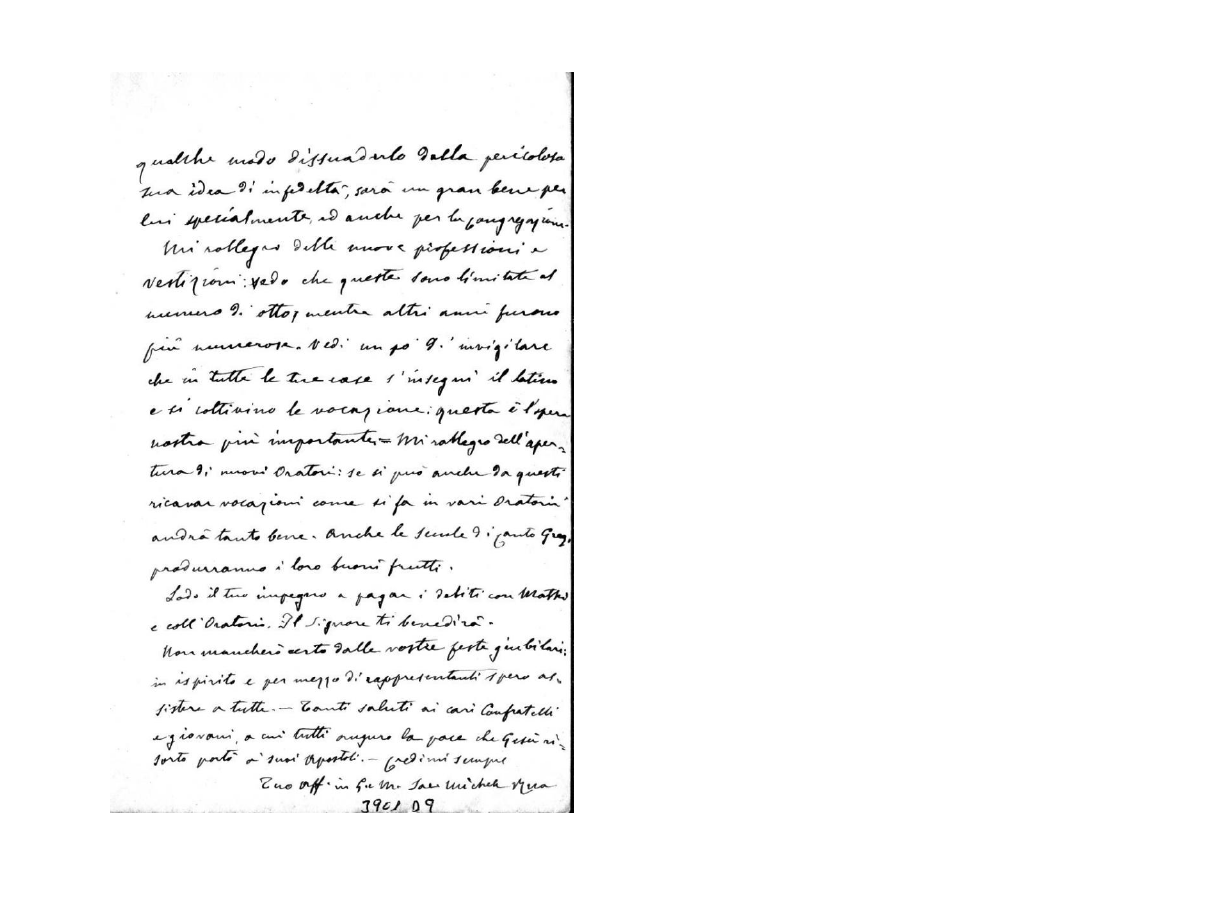 qualche modo dissuaderlo dalla pericolosa
sua idea di infedeltà, sarà un gran bene per
lui specialmente, ed anche per la Congregazione.
Mi rallegro delle nuove professioni e
vestizioni: vedo che queste sono limitate al
numero di otto, mentre altri anni furono
più numerose. Vedi un po' d'invigilare
che in tutte le tue case s'insegni il latino
e si coltivino le vocazione: questa è l'opera
nostra più importante = Mi rallegro dell'aper-
tura di nuovi Oratori: se si può anche da questi
ricavar vocazioni come si fa in vari Oratorii
andrà tanto bene. Anche le scuole di canto Greg.
produrranno i loro buoni frutti.
Lodo il tuo impegno a pagar i debiti con
e coll'Oratorio. Il Signore ti benedirà.
Non mancherò certo dalle vostre feste giubilari:
in ispirito e per mezzo di rappresentanti spero as-
sistere a tutte. — Tanti saluti ai cari Confratelli
e giovani, a cui tutti auguro la pace che Gesù ri-
sorto portò a' suoi Apostoli. — Credimi sempre
Tuo aff. in G. e M. Sac. Michele Rua
3901 D9